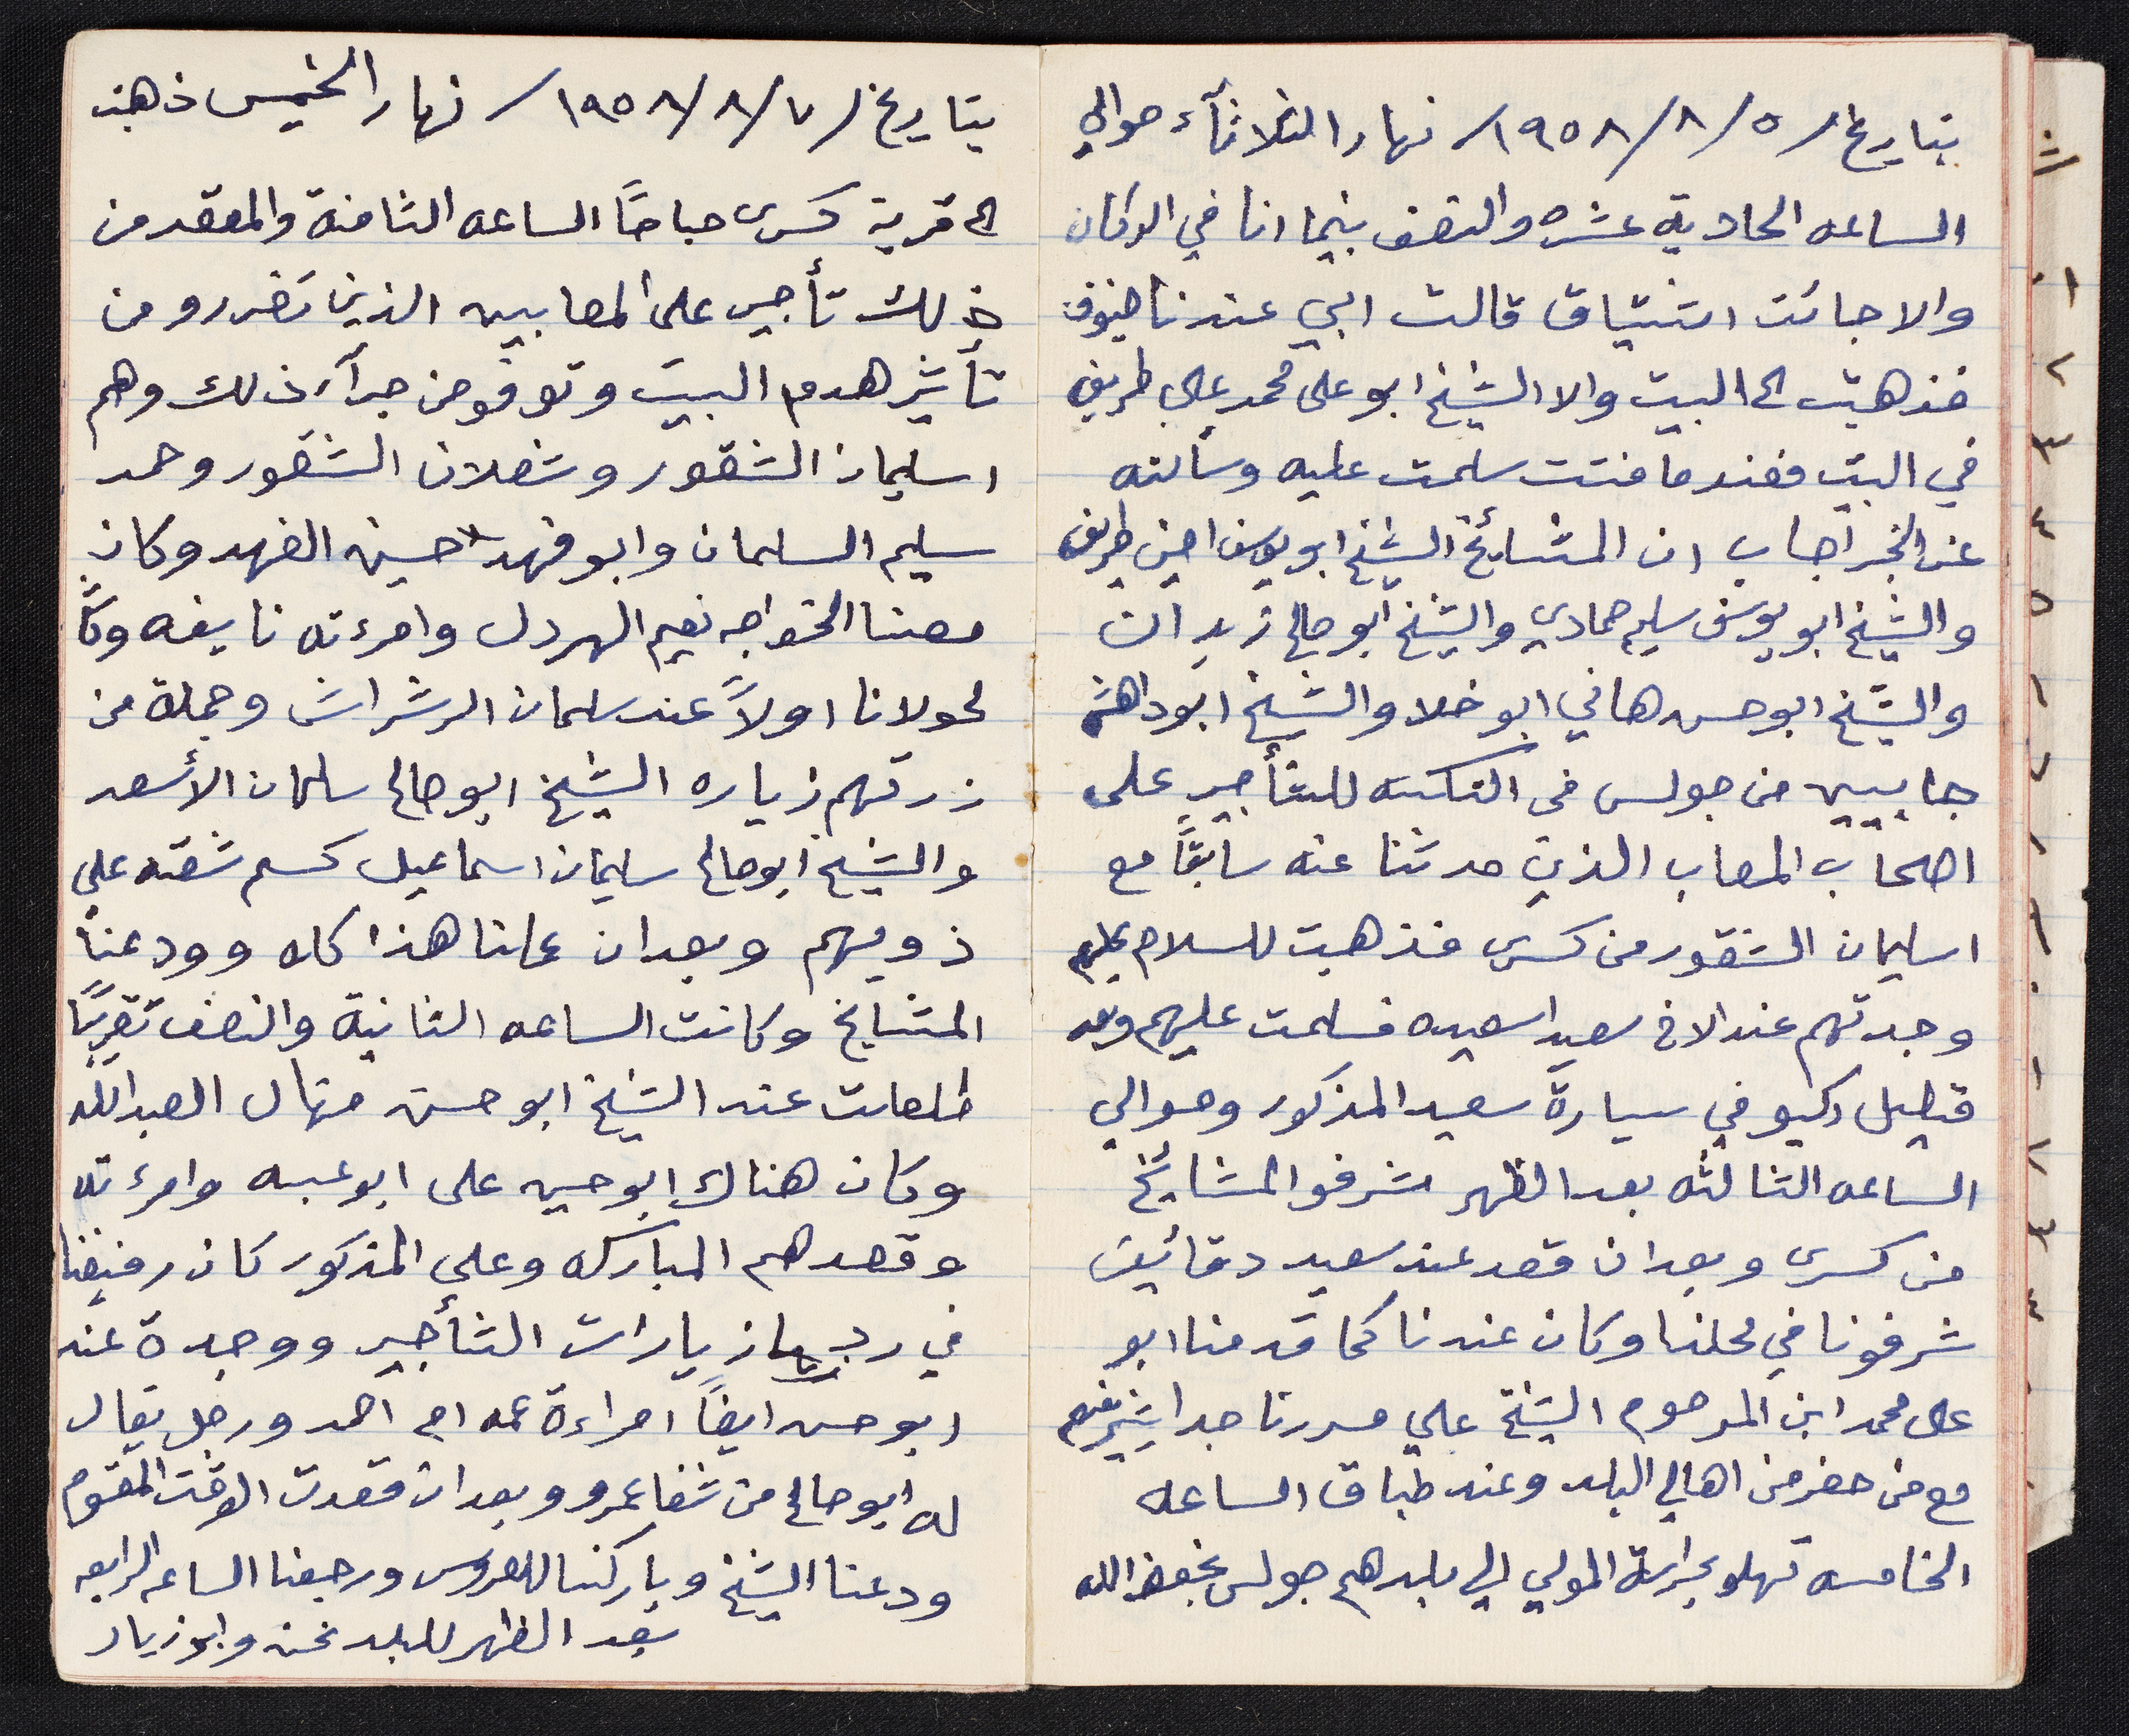 بتاريخ / ٥ / ٨ / ١٩٥٨ / نهار الثلاثآء حوالي
الساعه الحادية عشره والنصف بينما انا في الدكان
والا جائت اشتياق قالت ابي عندنا ضيوف
فذهبت الى البيت والا الشيخ ابو على محمد علي طريف
في البيت فعندما فتت سلمت عليه وسألته
عن الخبر اجاب ان المشائخ الشيخ ابو يوسف امين طريف
والشيخ ابو يوسف سليم حمادي والشيخ ابو صالح زيدان
والشيخ ابو حسن هاني ابو خلا والشيخ ابو داهش
جايين من جولس في التكسه للتأجير على
اصحاب المصاب الذين حدثنا عنه سابقاً مع
اسليمان الشقور من كسرى فذهبت للسلام عليهم
وجدتهم عند الاخ سعيد اسعيده فسلمت عليهم وبعد
قبصيل ركبو في سيارة سعيد المذكور وحوالي
الساعه الثالثه بعد الظهر شرفو المشائخ
من كسرى وبعد ان قعد عند سعيد دقائيق
شرفونا في محلنا وكان عندنا كما قدمنا ابو
على محمد ابن المرحوم الشيخ علي سررنا جدا بتشريفهم
مع من حضر من اهالي البلد وعند طباق الساعه
الخامسه تهلو بحراسة المولي الى بلدهم جولس بحفظ الله
بتاريخ / ٧ / ٨ / ١٩٥٨ / نهار الخميس ذهبت
الى قرية كسرى صباحاً الساعه الثامنة والمقصد من
ذلك تأجير على المصابين الذين تضررو من
تأثير هدم البيت وتوفو من جرآء ذلك وهم
اسليمان الشقور وشعلان الشقور وحمد
سليم السلمان وابو فهد حسين الفهد وكان
معنا الخواجه نعيم الهردل وامرءته نايفه وكا
لحولانا اولاً عند سلمان الرشراش وجملة من
زرتهم زياره الشيخ ابو صالح سلمان الأسعد
والشيخ ابو صالح سليمان اسماعيل كسم شفته علي
ذويهم وبعد ان عملنا هذا كله وودعنا
المشايخ وكانت الساعه الثانية والنصف تقريباً
طلعت عند الشيخ ابو حسن منهال العبدالله
وكان هناك ابو حسن على ابو عبيه وامرءته
وقصدهم المباركه وعلي المذكور كان رفيقنا
في رد زيارات التأجير ووجدة عند
ابو حسن ايضاً امراءة عمه ام احمد ورجل يقال
له ابو صالح من شفا عمرو وبعد ان قعدت الوقت المقسوم
ودعنا الشيخ وباركنا للعروس ورجعنا الساعه الرابعه
بعد الظهر للبلد نحن وابو زياد